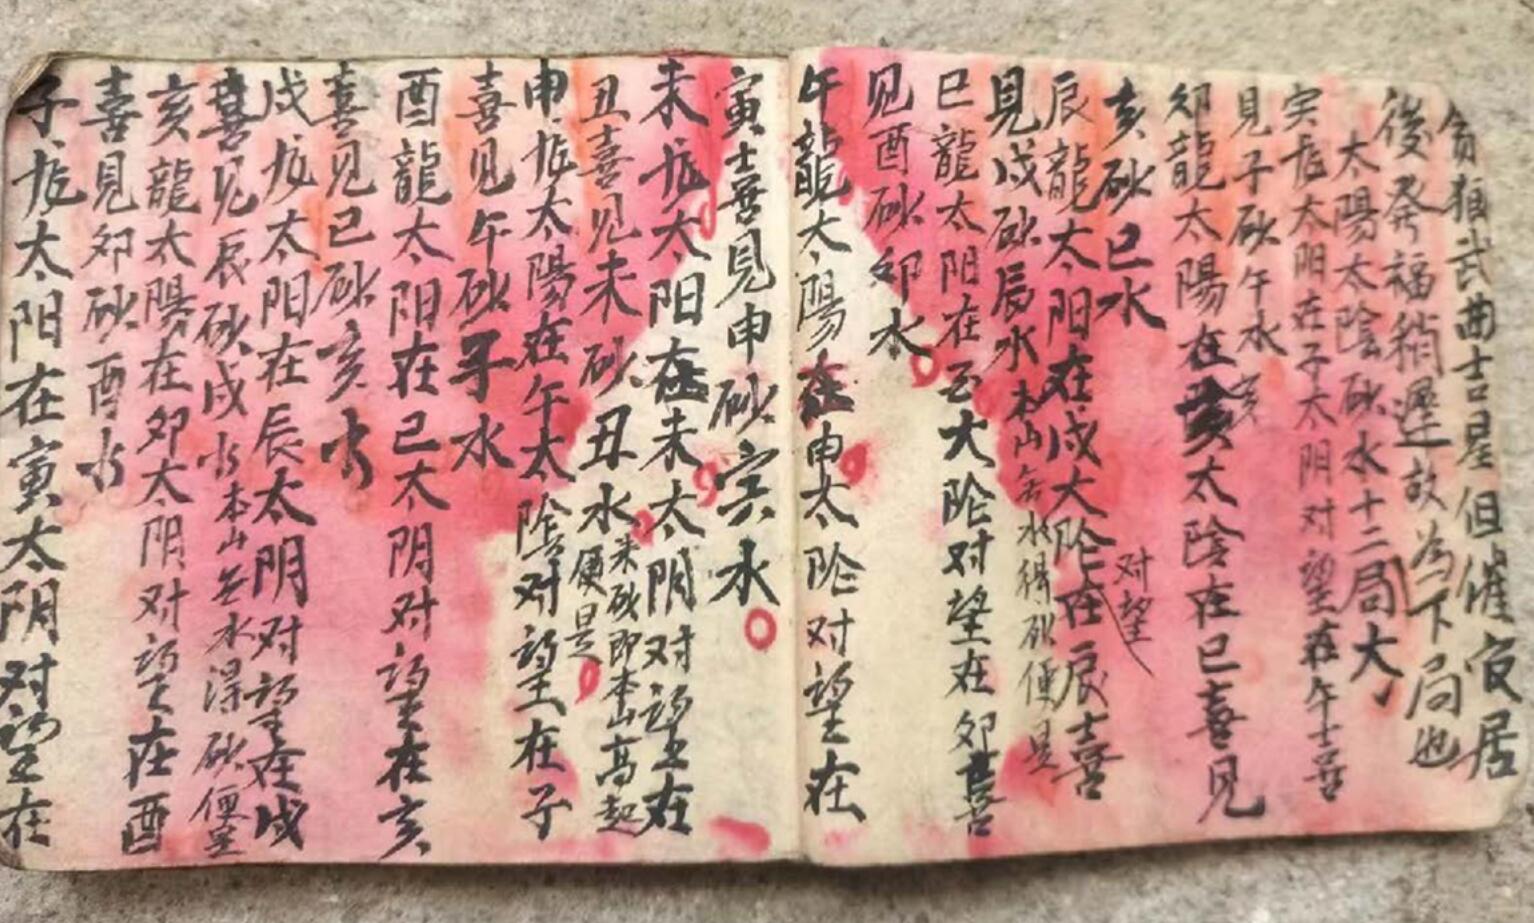 贪狼武曲吉星但催官居
後癸福稍遲故為下局也
太陽太陰砂水十二局大
寅龙太阳在子太阴对望在午士喜
見子砂午水
卯龍太陽在亥太陰在巳喜見
亥
亥砂巳水
辰龍太阳在戌大陰在辰士喜
对望
見戌砂辰水
本山无水得砂便是
巳龍太阳在酉大陰对望在卯喜
见酉砂卯水
午龍太陽在申太陰对望在
寅士喜見申砂寅水
未龙太阳在未太阴对望在
丑喜见未砂丑水
未砂即本山高起
便是
申龙太陽在午太陰对望在子
喜见午砂子水
酉龍太阳在巳太阴对望在亥
喜见巳砂亥水
戌龙太阳在辰太阴对望在戌
喜见辰砂戌水
本山无水得砂便是
亥龍太陽在卯太阴对望在酉
喜見卯砂酉水
子龙太阳在寅太阴对望在